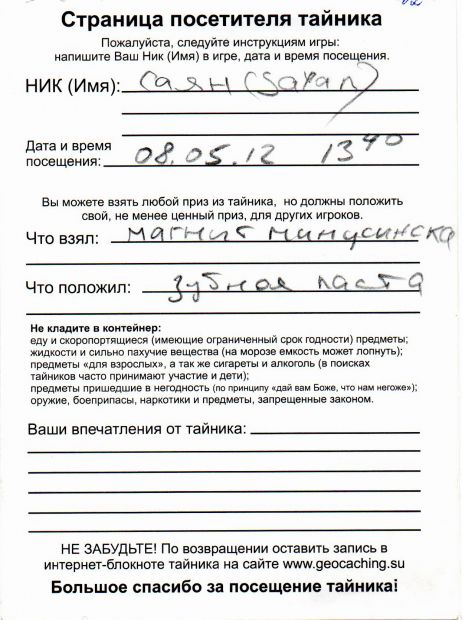 Страница посетителя тайника
Пожалуйста, следуйте инструкциям игры:
напишите Ваш Ник (Имя) в игре, дата и время посещения.
НИК (Имя): Саян (Sayan)
Дата и время
посещения: 08.05.12 13 40
Вы можете взять любой приз из тайника, но должны положить
свой, не менее ценный приз, для других игроков.
Что взял: магнит минусинска
Что положил: зубная паста
Не кладите в контейнер:
еду и скоропортящиеся (имеющие ограниченный срок годности) предметы;
жидкости и сильно пахучие вещества (на морозе емкость может лопнуть);
предметы «для взрослых», а так же сигареты и алкоголь (в поисках
тайников часто принимают участие и дети);
предметы пришедшие в негодность (по принципу «дай вам Боже, что нам негоже»);
оружие, боеприпасы, наркотики и предметы, запрещенные законом.
Ваши впечатления от тайника:
НЕ ЗАБУДЬТЕ! По возвращении оставить запись в
интернет-блокноте тайника на сайте www.geocaching.su
Большое спасибо за посещение тайника!